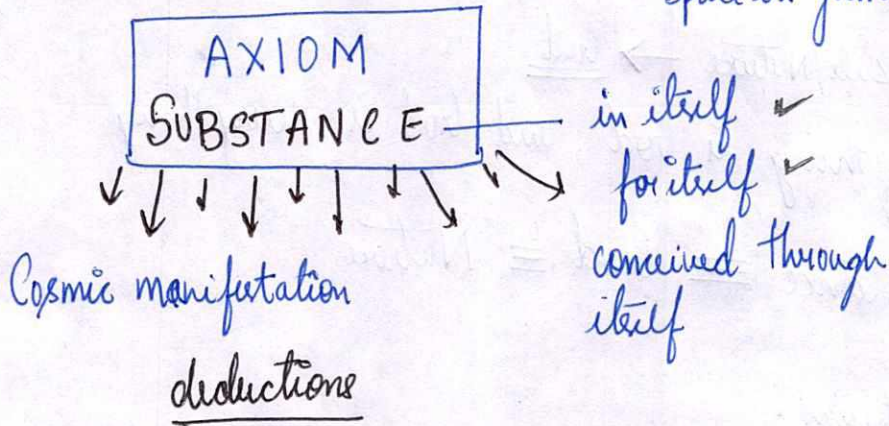 AXIOM
SUBSTANCE
in itself ✓
for itself ✓
conceived through
itself
Cosmic manifestation
deductions